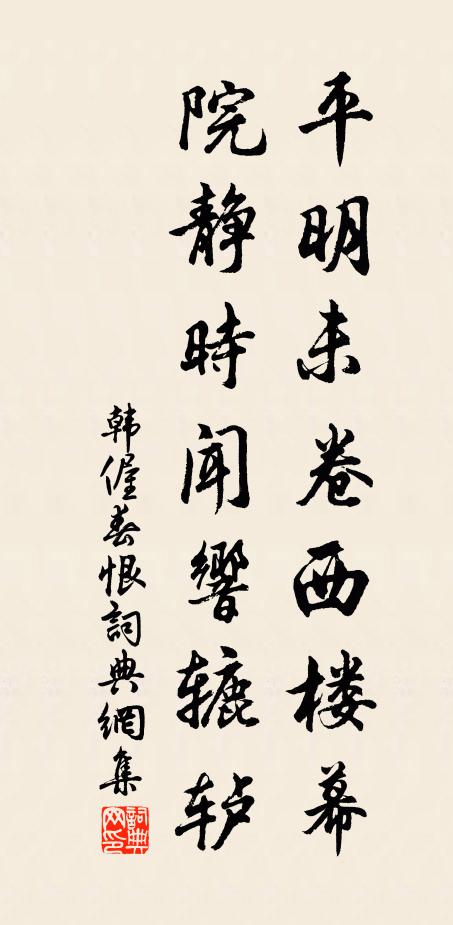 平明未卷西楼幕
院静時闻響辘轳
韩偓春恨詞典網集
詞典网印